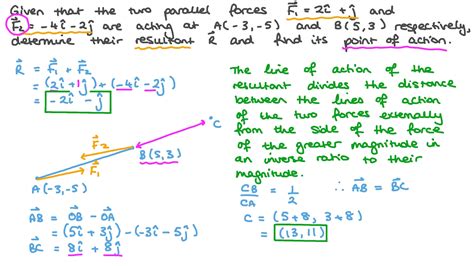 Given that the two parallel forces F⃗₁ = 2î + ĵ and
F⃗₂ = -4î - 2ĵ are acting at A(-3,-5) and B(5,3) respectively,
determine their resultant R⃗ and find its point of action.
R⃗ = F⃗₁ + F⃗₂
= (2î + 1ĵ) + (-4î - 2ĵ)
= -2î - ĵ
C
F⃗₂
B(5,3)
F⃗₁
A(-3,-5)
AB⃗ = OB⃗ - OA⃗
= (5î + 3ĵ) - (-3î - 5ĵ)
BC⃗ = 8î + 8ĵ
The line of action of the
resultant divides the distance
between the lines of action
of the two forces externally
from the side of the force
of the greater magnitude in
an inverse ratio to their
magnitude.
CB/CA = 1/2 ∴ AB⃗ = BC⃗
C = (5+8, 3+8)
= (13,11)